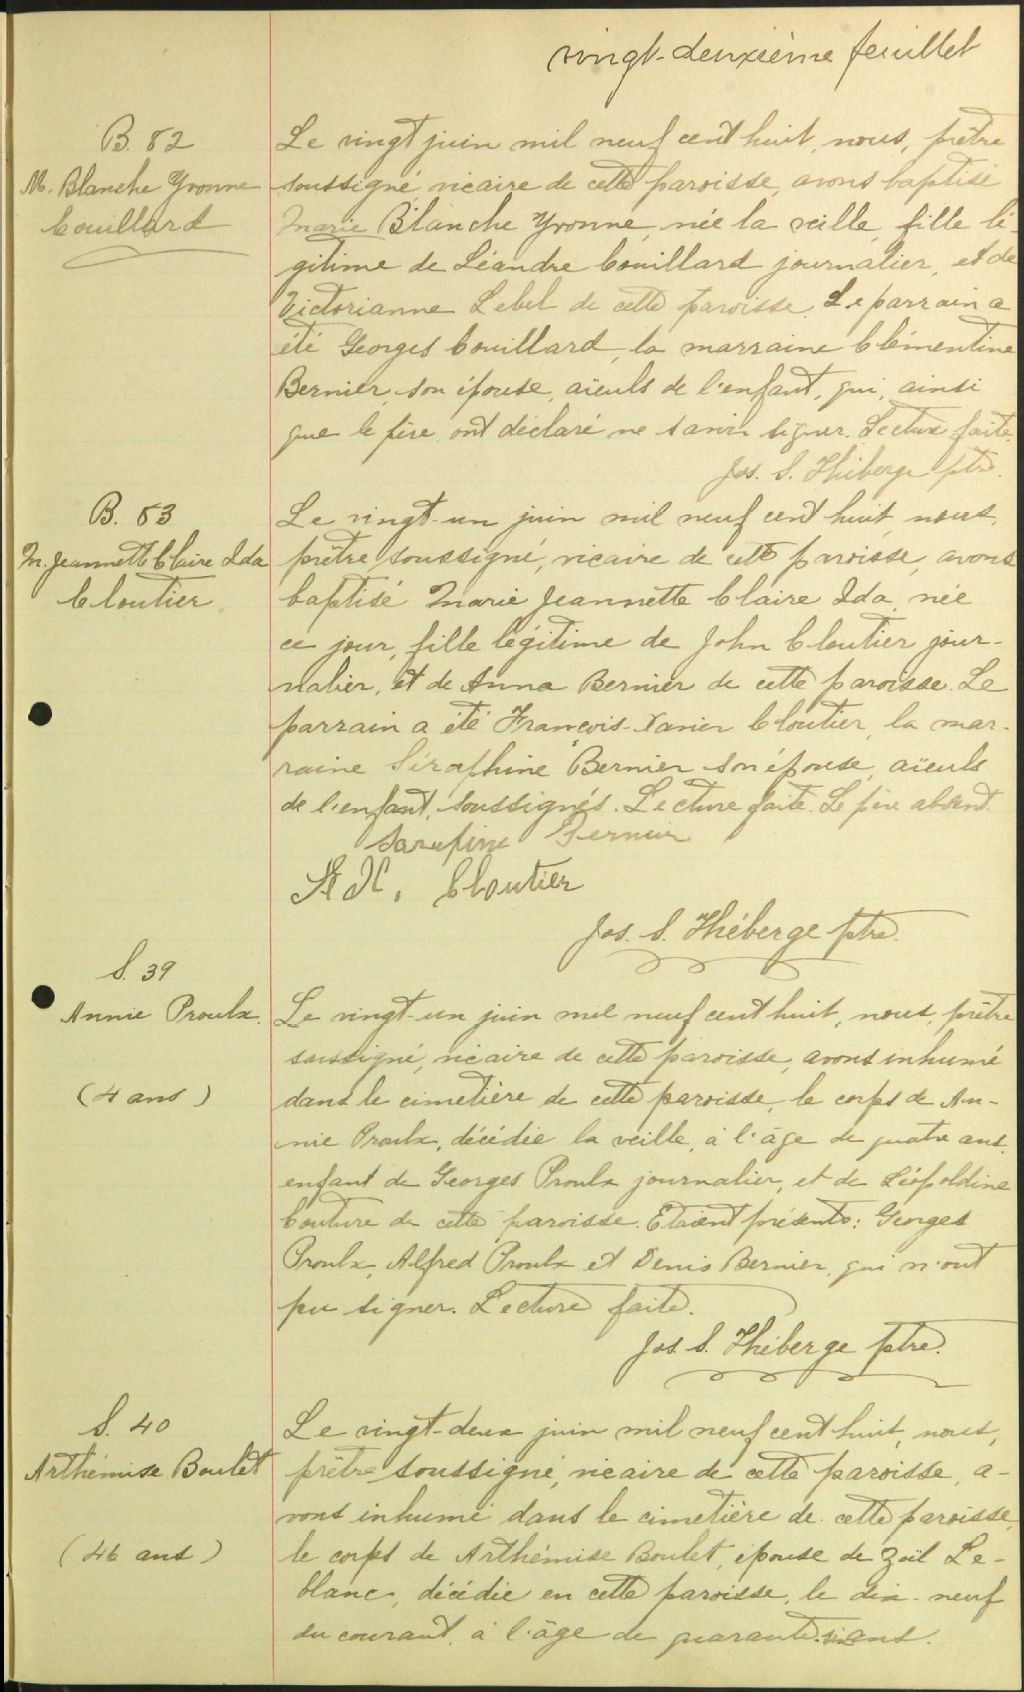 vingt-deuxième feuillet
B. 82
M. Blanche Yvonne
Couillard
Le vingt juin mil neuf cent huit, nous, prêtre
soussigné, vicaire de cette paroisse, avons baptisé
Marie Blanche Yvonne, née la veille, fille lé-
gitime de Léandre Couillard journalier, et de
Victorianne Lebel de cette paroisse. Le parrain a
été Georges Couillard, la marraine Clémentine
Bernier, son épouse, aïeuls de l'enfant, qui, ainsi
que le père, ont déclaré ne savoir signer. Lecture faite.
Jos. S. Théberge ptre.
B. 83
M. Jeannette Claire Ida
Cloutier
Le vingt-un juin mil neuf cent huit, nous,
prêtre soussigné, vicaire de cette paroisse, avons
baptisé Marie Jeannette Claire Ida, née
ce jour, fille légitime de John Cloutier jour-
nalier, et de Anna Bernier de cette paroisse. Le
parrain a été François-Xavier Cloutier, la mar-
raine Séraphine Bernier son épouse, aïeuls
de l'enfant, soussignés. Lecture faite. Le père absent.
Sarafine Bernier
F. X. Cloutier
Jos. S. Théberge ptre.
S. 39
Annie Proulx.
(4 ans)
Le vingt-un juin mil neuf cent huit, nous, prêtre
soussigné, vicaire de cette paroisse, avons inhumé
dans le cimetière de cette paroisse, le corps de An-
nie Proulx, décédée la veille, à l'âge de quatre ans,
enfant de Georges Proulx journalier, et de Léopoldine
Couture de cette paroisse. Etaient présents: Georges
Proulx, Alfred Proulx et Denis Bernier, qui n'ont
pu signer. Lecture faite.
Jos. S. Théberge ptre.
S. 40
Arthémise Boulet
(46 ans)
Le vingt-deux juin mil neuf cent huit, nous,
prêtre soussigné, vicaire de cette paroisse, a-
vons inhumé dans le cimetière de cette paroisse,
le corps de Arthémise Boulet, épouse de Zoël Le-
blanc, décédée en cette paroisse, le dix-neuf
du courant, à l'âge de quarante-six ans.